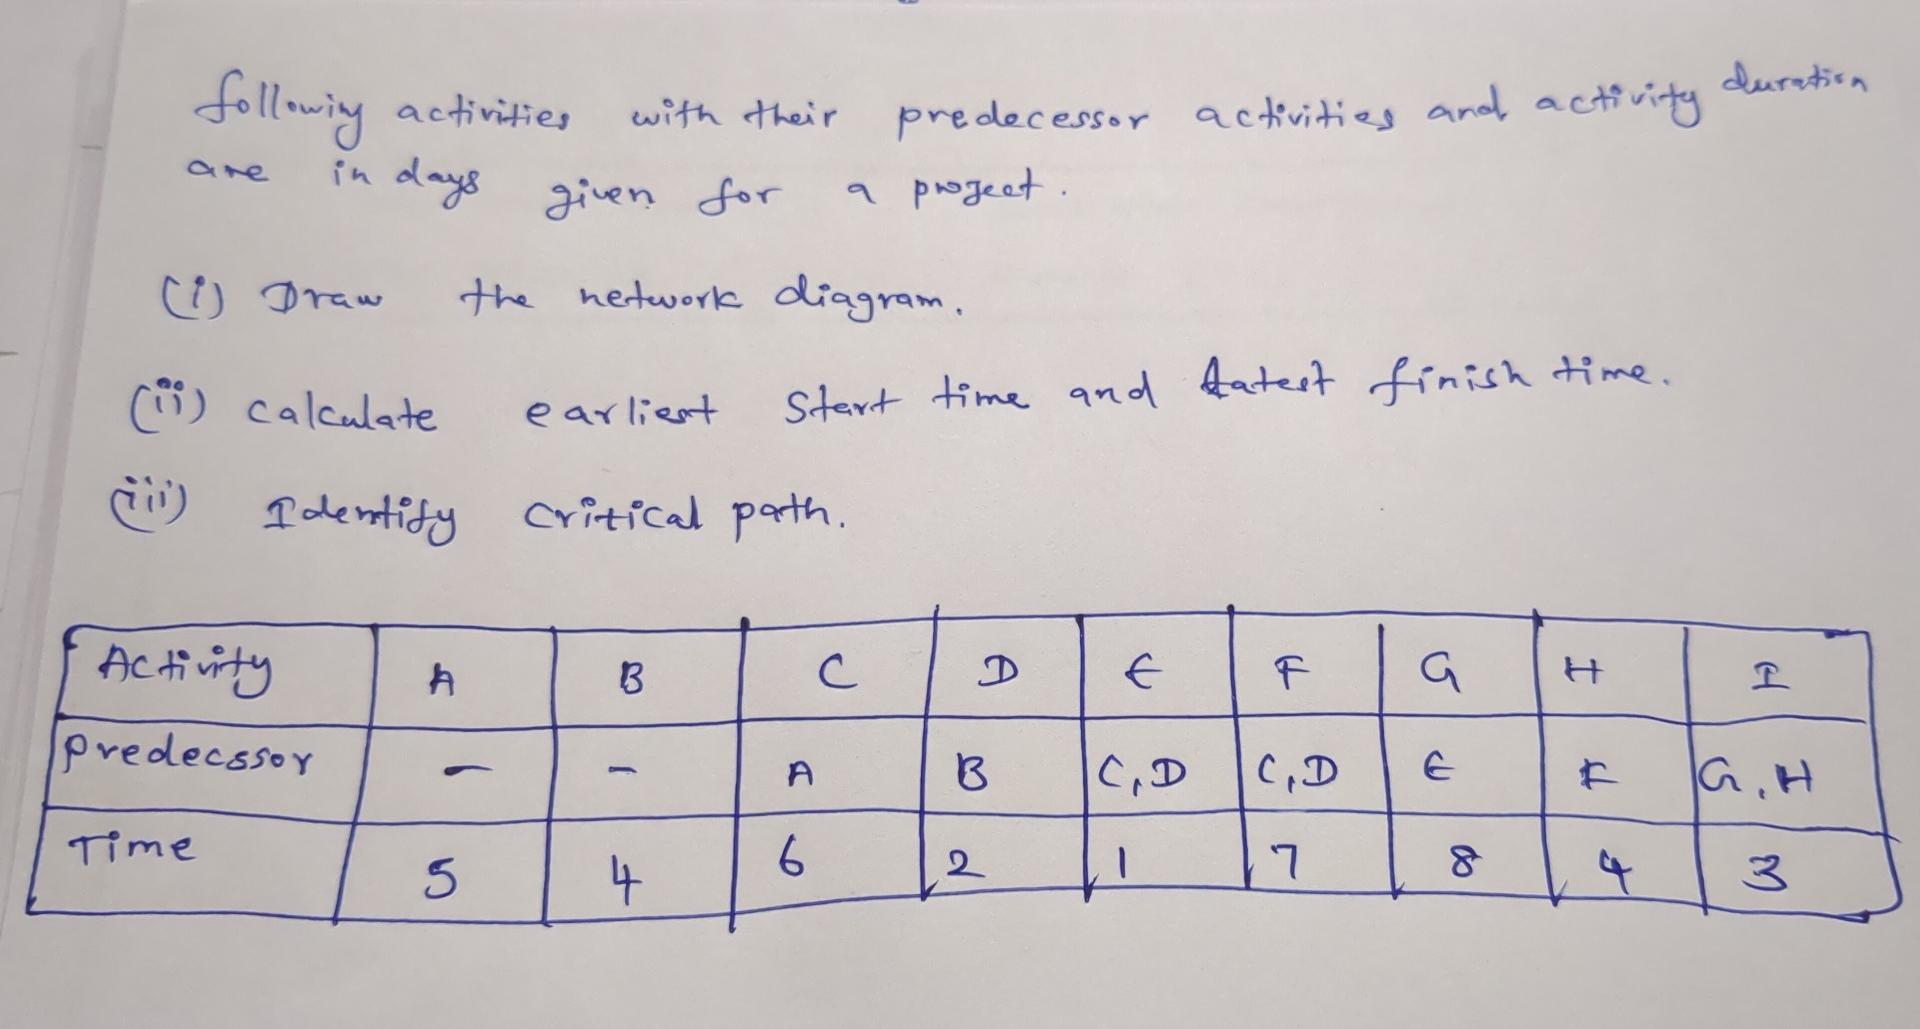 following activities with their predecessor activities and activity duration
are in days given for a project.
(i) Draw the network diagram.
(ii) calculate earliest start time and latest finish time.
(iii) Identify critical path.
Activity A B C D E F G H I
Predecssor - - A B C,D C,D E F G,H
Time 5 4 6 2 1 7 8 4 3